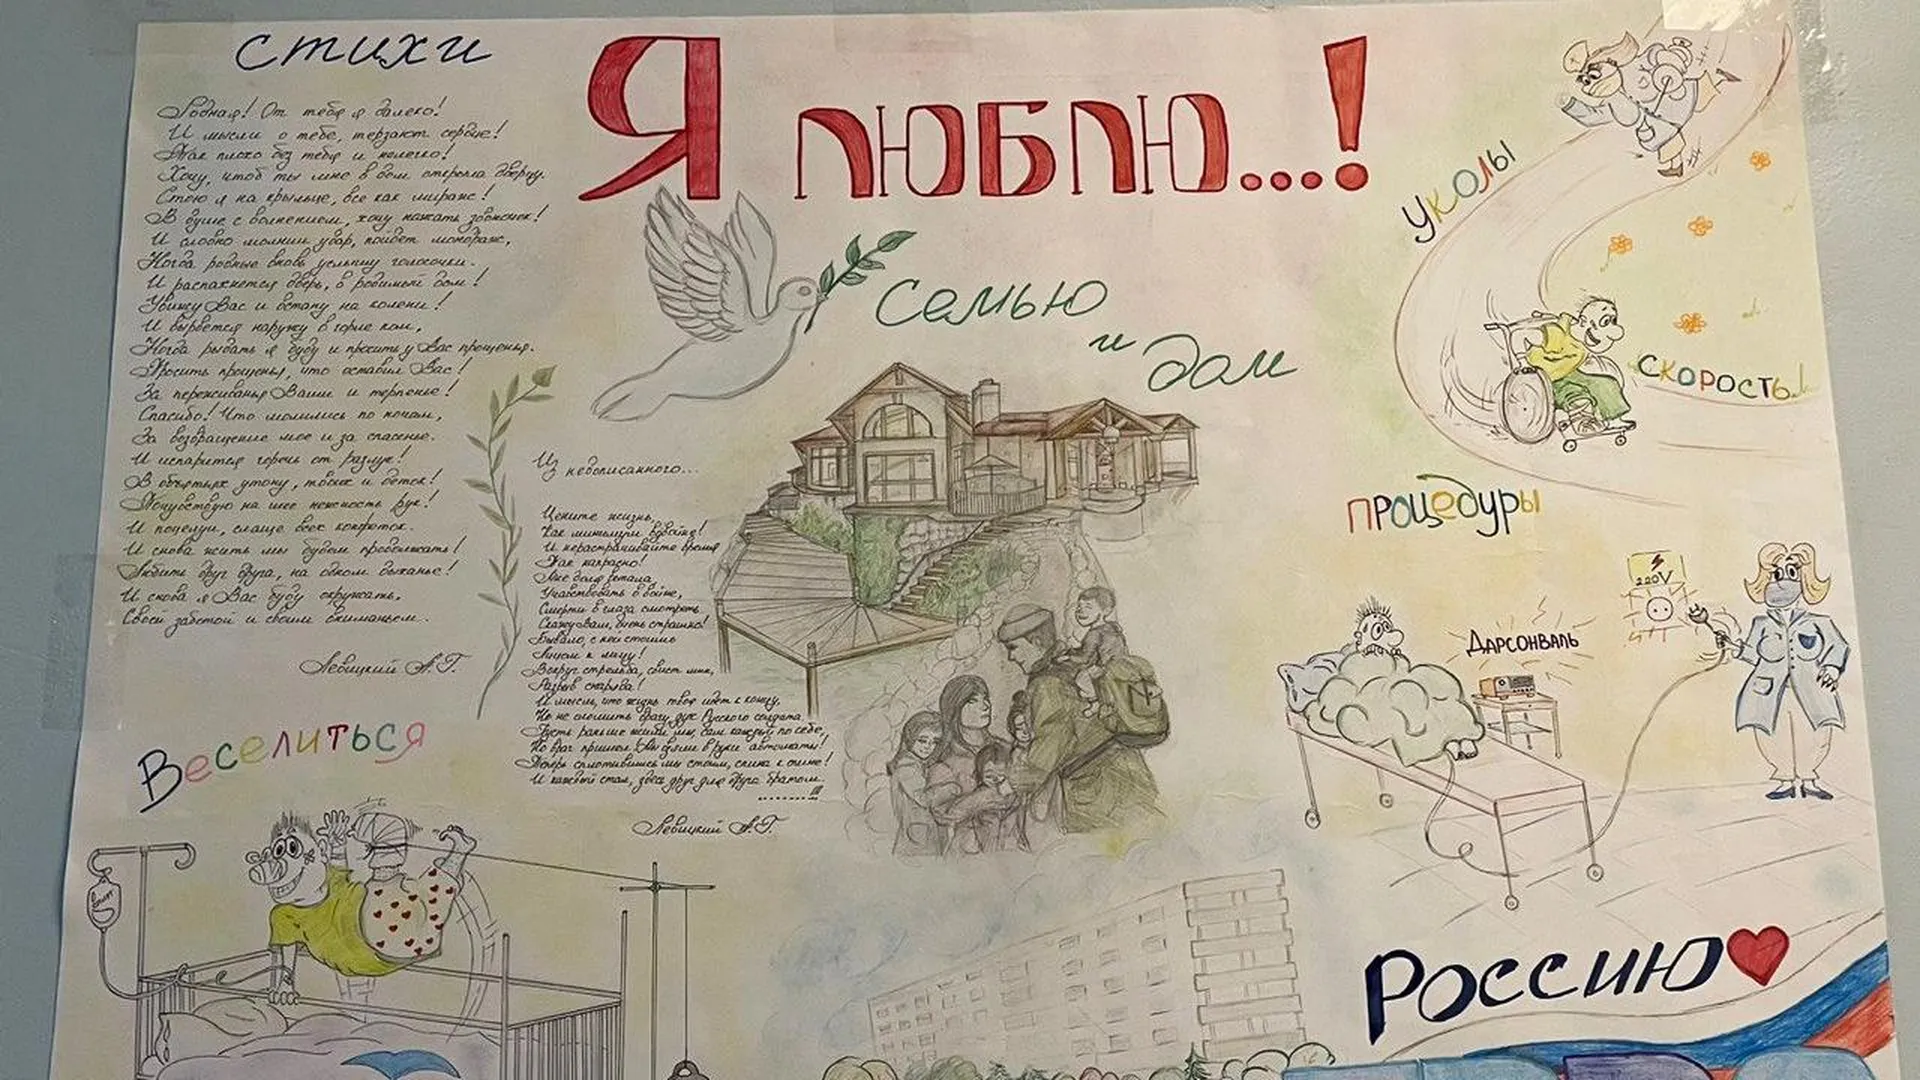 стихи
Родная! От тебя я далеко!
И мысли о тебе, терзают сердце!
Как плохо без тебя и нелегко!
Хочу, чтоб ты мне в дом открыла дверцу.
Стою я на крыльце, все как мираж!
В душе с волнением, хочу нажать звоночек!
И словно молнии удар, пойдет мандраж,
Когда родные вновь услышу голосочки.
И распахнется дверь, в родимый дом!
Увижу Вас и встану на колени!
И вырвется наружу в горле ком,
Когда рыдать я буду и просить у Вас прощенья.
Просить прощенья, что оставил Вас!
За переживанья Ваши и терпенье!
Спасибо! Что молились по ночам,
За возвращение мое и за спасенье.
И испарится горечь от разлук!
В объятьях утону, твоих и деток!
Почувствую на шее нежность рук!
И поцелуи, слаще всех конфеток.
И снова жить мы будем продолжать!
Любить друг друга, на одном дыханье!
И снова я Вас буду окружать,
Своей заботой и своим вниманьем.
Левицкий А.Г.
Я люблю...!
Семью
и Дом
Из недописанного...
Цените жизнь,
Как минимум вдвойне!
И нерастрачивайте время
Так напрасно!
Мне доля выпала
Участвовать в войне,
Смерти в глаза смотреть
Скажу Вам, очень страшно!
Бывало, с ней стоишь
Лицом к лицу!
Вокруг стрельба, свист мин,
Разрыв снаряда!
И мысль, что жизнь твоя идет к концу,
Но не сломить врагу, дух Русского солдата
Пусть раньше жили мы, сам каждый по себе,
Но враг пришел. Мы взяли в руки автоматы!
Теперь сплотившись мы стоим, спина к спине!
И каждый стал, здесь друг для друга братом.
Левицкий А.Г.
уколы
скорость!
процедуры
220V
Дарсонваль
Веселиться
Россию